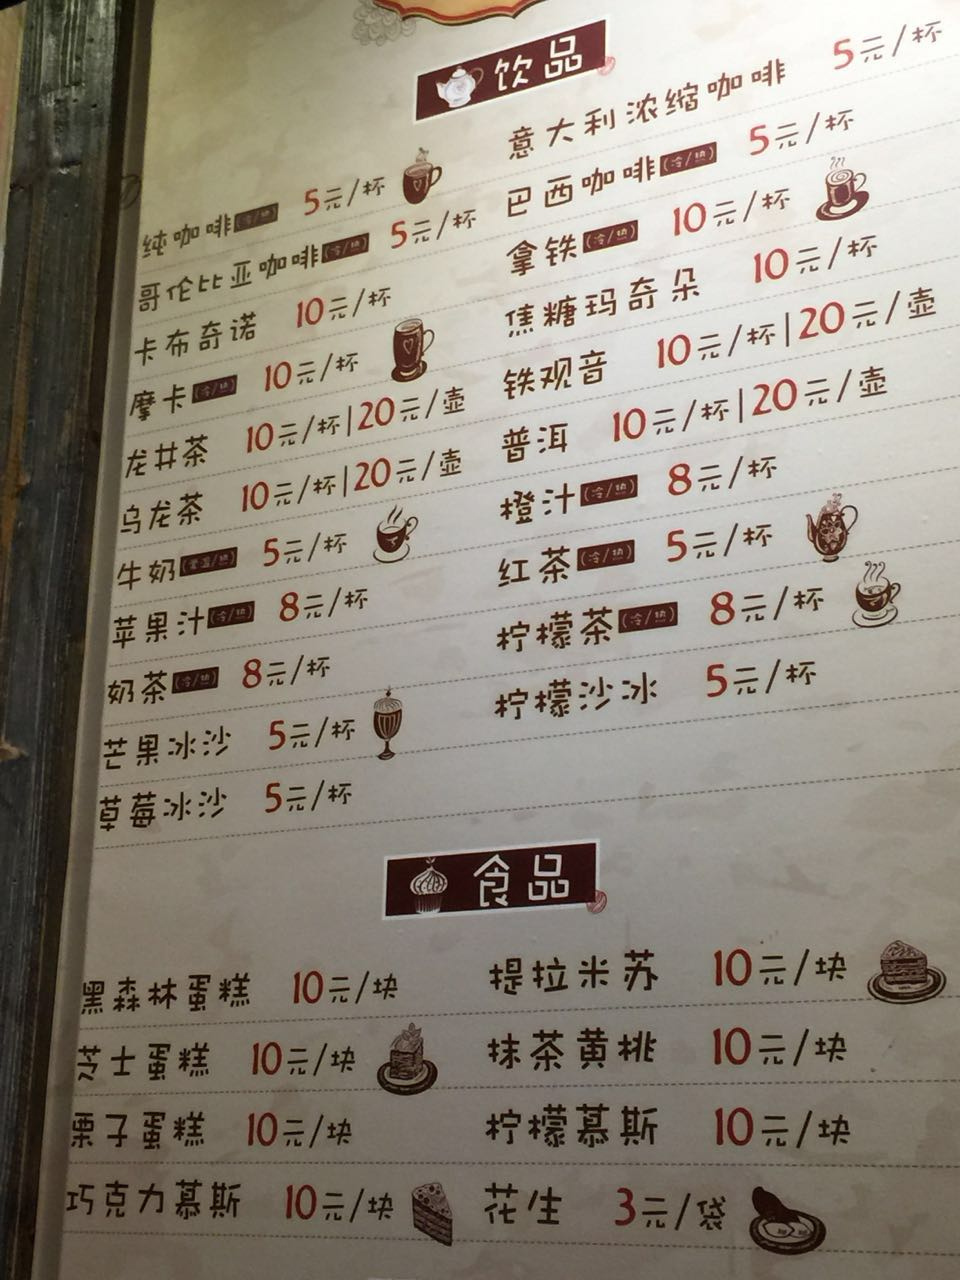 饮品
纯咖啡(冷/热) 5元/杯
意大利浓缩咖啡 5元/杯
哥伦比亚咖啡(冷/热) 5元/杯
巴西咖啡(冷/热) 5元/杯
卡布奇诺 10元/杯
拿铁(冷/热) 10元/杯
摩卡(冷/热) 10元/杯
焦糖玛奇朵 10元/杯
龙井茶 10元/杯|20元/壶
铁观音 10元/杯|20元/壶
乌龙茶 10元/杯|20元/壶
普洱 10元/杯|20元/壶
牛奶(常温/热) 5元/杯
橙汁(冷/热) 8元/杯
苹果汁(冷/热) 8元/杯
红茶(冷/热) 5元/杯
奶茶(冷/热) 8元/杯
柠檬茶(冷/热) 8元/杯
芒果冰沙 5元/杯
柠檬沙冰 5元/杯
草莓冰沙 5元/杯
食品
黑森林蛋糕 10元/块
提拉米苏 10元/块
芝士蛋糕 10元/块
抹茶黄桃 10元/块
栗子蛋糕 10元/块
柠檬慕斯 10元/块
巧克力慕斯 10元/块
花生 3元/袋